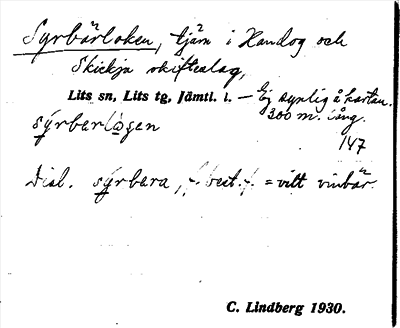 Syrbärloken, tjärn i Handog och
Skickja skifteslag,
Lits sn, Lits tg, Jämtl. l. – Ej synlig å kartan.
300 m. lång.
sýrbarlo̱gen
147
Dial. sýrbara, /: best. /: = vilt vinbär.
C. Lindberg 1930.